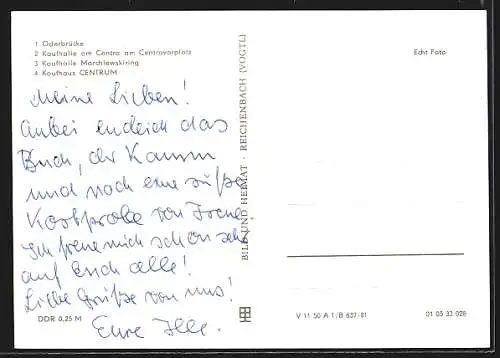 1 Oderbrücke
2 Kaufhalle am Centra am Centravorplatz
3 Kaufhalle Marchlewskiring
4 Kaufhaus CENTRUM
Echt Foto
Meine Lieben!
Anbei endlich das
Buch, der Kamm
und noch eine süße
Kostprobe von Irene.
Ich freue mich schon sehr
auf Euch alle!
Liebe Grüße von uns!
Eure Ille.
DDR 0,25 M
BILD UND HEIMAT · REICHENBACH (VOGTL)
V 11 50 A 1/B 637/81
01 05 33 028